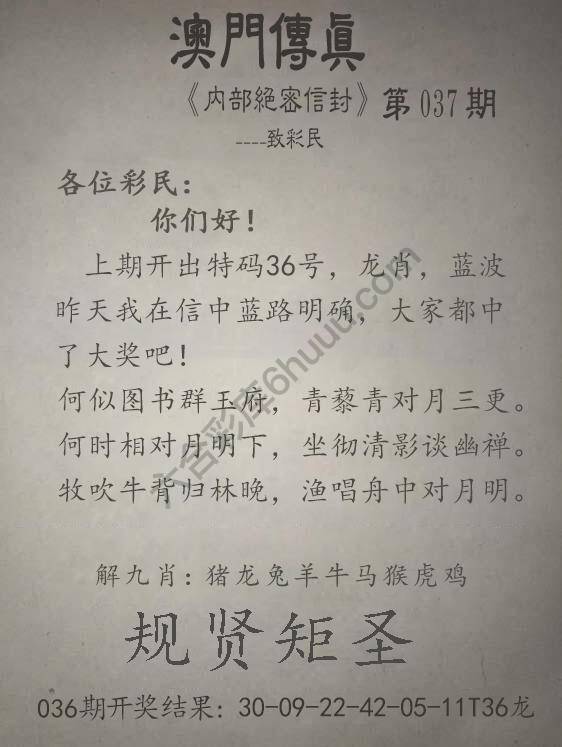 澳門傳眞
《内部絕密信封》第037期
----致彩民
各位彩民：
你们好！
上期开出特码36号，龙肖，蓝波
昨天我在信中蓝路明确，大家都中
了大奖吧！
何似图书群玉府，青藜青对月三更。
何时相对月明下，坐彻清影谈幽禅。
牧吹牛背归林晚，渔唱舟中对月明。
解九肖：猪龙兔羊牛马猴虎鸡
规贤矩圣
036期开奖结果：30-09-22-42-05-11T36龙
六合彩库6huuu.com